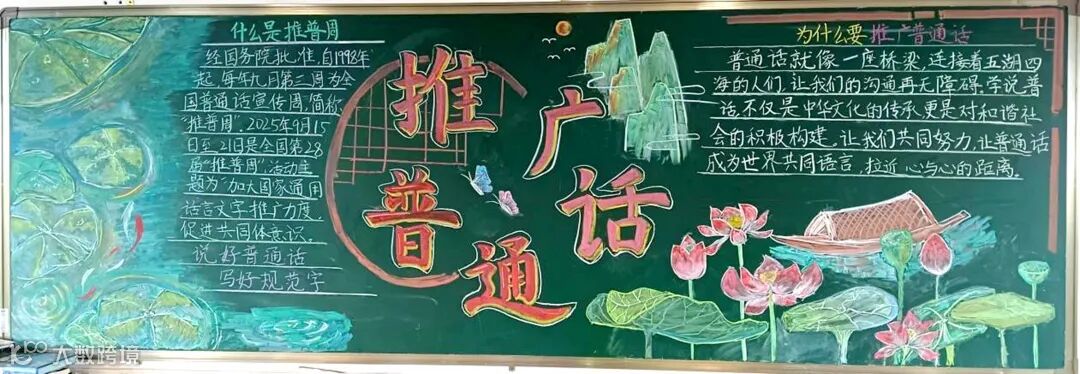 什么是推普周
经国务院批准,自1998年
起,每年九月第三周为全
国普通话宣传周,简称
“推普周”,2025年9月15
日至21日是全国第28
届“推普周”,活动主
题为“加大国家通用
语言文字推广力度,
促进共同体意识。
说好普通话
写好规范字
推广
普通话
为什么要推广普通话
普通话就像一座桥梁,连接着五湖四
海的人们,让我们的沟通再无障碍,学说普
话,不仅是中华文化的传承,更是对和谐社
会的积极构建,让我们共同努力,让普通话
成为世界共同语言,拉近心与心的距离。
大数跨境